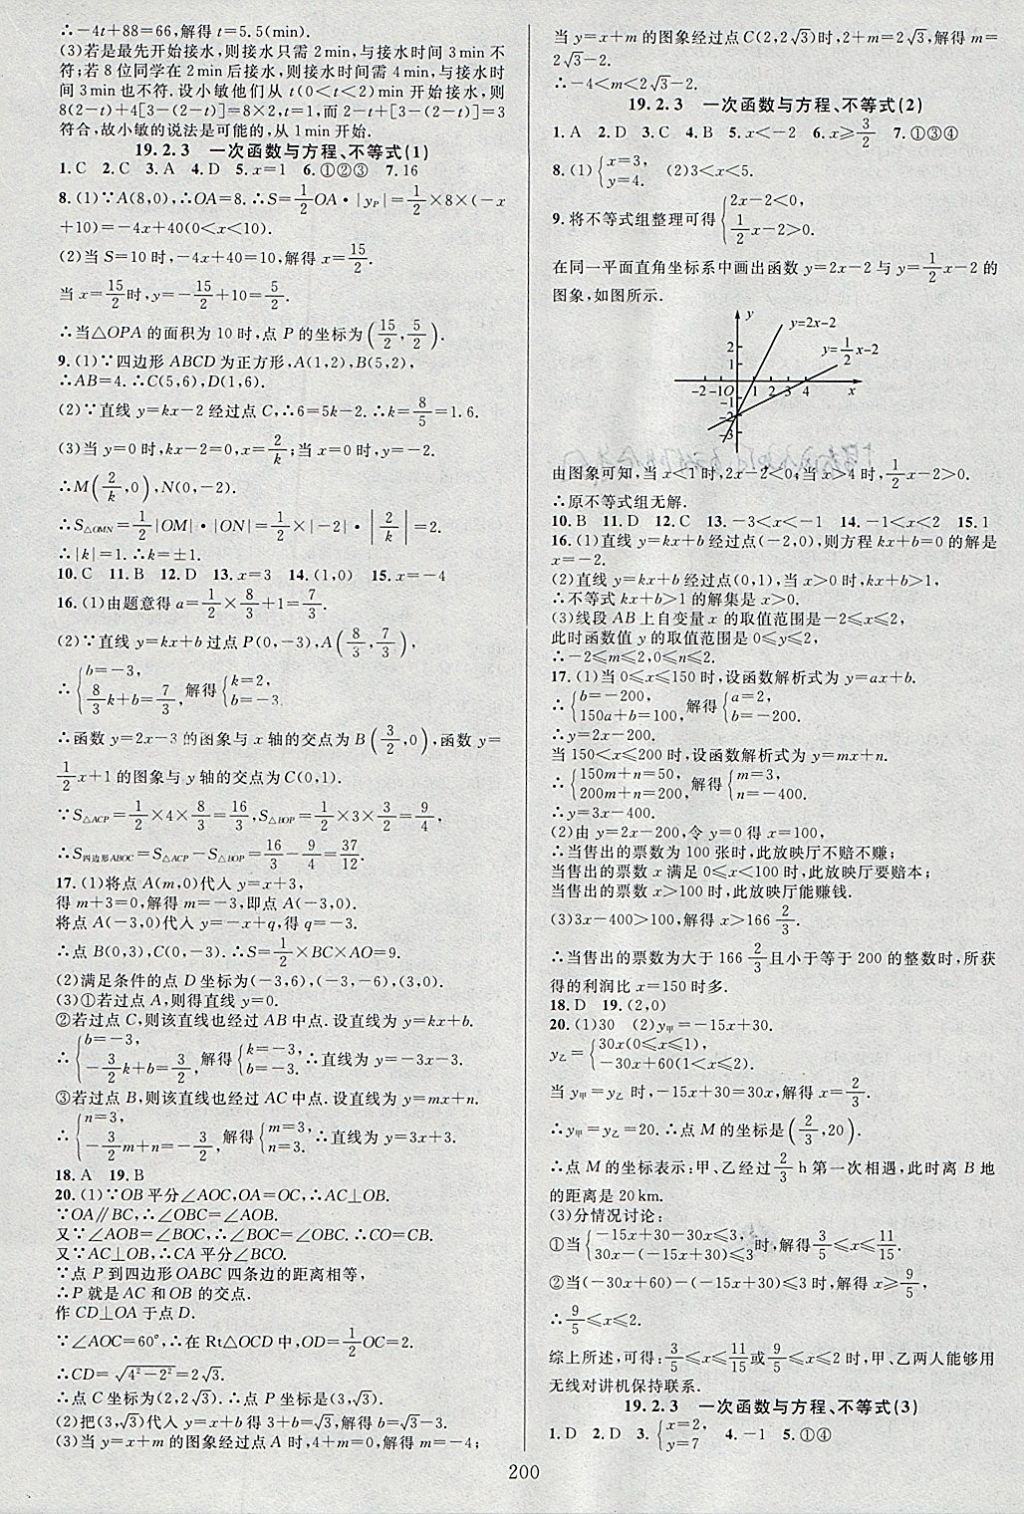 ∴-4t+88=66,解得t=5.5(min).
(3)若是最先开始接水,则接水只需2min,与接水时间3min不
符;若8位同学在2min后接水,则接水时间需4min,与接水时
间3min也不符.设小敏他们从t(0<t<2)min开始接水,则
8(2-t)+4[3-(2-t)]=8×2,t=1,而2-t+[3-(2-t)]=3
符合,故小敏的说法是可能的,从1min开始.
19.2.3 一次函数与方程、不等式(1)
1.C 2.C 3.A 4.D 5.x=1 6.①②③ 7.16
8.(1)∵A(8,0),∴OA=8.∴S=1/2OA·|y_P|=1/2×8×(-x
+10)=-4x+40(0<x<10).
(2)当S=10时,-4x+40=10,解得x=15/2.
当x=15/2时,y=-15/2+10=5/2.
∴当△OPA的面积为10时,点P的坐标为(15/2,5/2).
9.(1)∵四边形ABCD为正方形,A(1,2),B(5,2),
∴AB=4.∴C(5,6),D(1,6).
(2)∵直线y=kx-2经过点C,∴6=5k-2.∴k=8/5=1.6.
(3)当y=0时,kx-2=0,x=2/k;当x=0时,y=-2.
∴M(2/k,0),N(0,-2).
∴S△OMN=1/2|OM|·|ON|=1/2×|-2|·|2/k|=2.
∴|k|=1.∴k=±1.
10.C 11.B 12.D 13.x=3 14.(1,0) 15.x=-4
16.(1)由题意得a=1/2×8/3+1=7/3.
(2)∵直线y=kx+b过点P(0,-3),A(8/3,7/3),
∴{b=-3, 8/3k+b=7/3, 解得{k=2, b=-3.
∴函数y=2x-3的图象与x轴的交点为B(3/2,0),函数y=
1/2x+1的图象与y轴的交点为C(0,1).
∵S△ACP=1/2×4×8/3=16/3,S△BOP=1/2×3×3/2=9/4,
∴S四边形ABOC=S△ACP-S△BOP=16/3-9/4=37/12.
17.(1)将点A(m,0)代入y=x+3,
得m+3=0,解得m=-3,即点A(-3,0).
将点A(-3,0)代入y=-x+q,得q=-3.
∴点B(0,3),C(0,-3).∴S=1/2×BC×AO=9.
(2)满足条件的点D坐标为(-3,6),(-3,-6),(3,0).
(3)①若过点A,则得直线y=0.
②若过点C,则该直线也经过AB中点.设直线为y=kx+b.
∴{b=-3, -3/2k+b=3/2, 解得{k=-3, b=-3. ∴直线为y=-3x-3.
③若过点B,则该直线也经过AC中点.设直线为y=mx+n.
∴{n=3, -3/2m+n=-3/2, 解得{m=3, n=3. ∴直线为y=3x+3.
18.A 19.B
20.(1)∵OB平分∠AOC,OA=OC,∴AC⊥OB.
∵OA∥BC,∴∠OBC=∠AOB.
又∵∠AOB=∠BOC,∴∠BOC=∠OBC.∴OC=CB.
又∵AC⊥OB,∴CA平分∠BCO.
∵点P到四边形OABC四条边的距离相等,
∴P就是AC和OB的交点.
作CD⊥OA于点D.
∵∠AOC=60°,∴在Rt△OCD中,OD=1/2OC=2.
∴CD=√(4²-2²)=2√3.
∴点C坐标为(2,2√3).∴点P坐标是(3,√3).
(2)把(3,√3)代入y=x+b得3+b=√3,解得b=√3-3.
(3)当y=x+m的图象经过点A时,4+m=0,解得m=-4;
当y=x+m的图象经过点C(2,2√3)时,2+m=2√3,解得m=
2√3-2.
∴-4<m<2√3-2.
19.2.3 一次函数与方程、不等式(2)
1.A 2.D 3.C 4.B 5.x<-2 6.x≥3/2 7.①③④
8.(1){x=3, y=4. (2)3<x<5.
9.将不等式组整理可得{2x-2<0, 1/2x-2>0.
在同一平面直角坐标系中画出函数y=2x-2与y=1/2x-2的
图象,如图所示.
y y=2x-2
y=1/2x-2
2
1
-2 -1 O 1 2 3 4 x
-1
-2
-3
由图象可知,当x<1时,2x-2<0;当x>4时,1/2x-2>0.
∴原不等式组无解.
10.B 11.D 12.C 13.-3<x<-1 14.-1<x<2 15.1
16.(1)直线y=kx+b经过点(-2,0),则方程kx+b=0的解是
x=-2.
(2)直线y=kx+b经过点(0,1),当x>0时,kx+b>1,
∴不等式kx+b>1的解集是x>0.
(3)线段AB上自变量x的取值范围是-2≤x≤2,
此时函数值y的取值范围是0≤y≤2,
∴-2≤m≤2,0≤n≤2.
17.(1)当0≤x≤150时,设函数解析式为y=ax+b.
∴{b=-200, 150a+b=100, 解得{a=2, b=-200.
∴y=2x-200.
当150<x≤200时,设函数解析式为y=mx+n.
∴{150m+n=50, 200m+n=200, 解得{m=3, n=-400.
∴y=3x-400.
(2)由y=2x-200,令y=0得x=100,
∴当售出的票数为100张时,此放映厅不赔不赚;
当售出的票数x满足0≤x<100时,此放映厅要赔本;
当售出的票数x>100时,此放映厅能赚钱.
(3)3x-400>100,解得x>166 2/3.
∴当售出的票数为大于166 2/3且小于等于200的整数时,所获
得的利润比x=150时多.
18.D 19.(2,0)
20.(1)30 (2)y甲=-15x+30.
y乙={30x(0≤x≤1), -30x+60(1<x≤2).
当y甲=y乙时,-15x+30=30x,解得x=2/3.
∴y甲=y乙=20.∴点M的坐标是(2/3,20).
∴点M的坐标表示:甲、乙经过2/3 h第一次相遇,此时离B地
的距离是20km.
(3)分情况讨论:
①当{-15x+30-30x≤3, 30x-(-15x+30)≤3 时,解得3/5≤x≤11/15.
②当(-30x+60)-(-15x+30)≤3时,解得x≥9/5,
∴9/5≤x≤2.
综上所述,可得:3/5≤x≤11/15或9/5≤x≤2时,甲、乙两人能够用
无线对讲机保持联系.
19.2.3 一次函数与方程、不等式(3)
1.D 2.D 3.{x=2, y=7 4.-1 5.①④
200